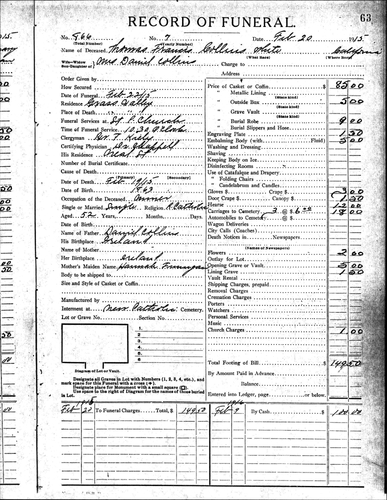 63
RECORD OF FUNERAL.
No. 566 No. 7 Date Feb 20 1915
(Total Number) (Yearly Number)
Name of Deceased Thomas Francis Collins White California
What Race) (Where Born)
Son or Daughter of Mrs Daniel Collins Charge to
Address
Order Given by
How Secured
Date of Funeral Feb 22/15
Residence Grass Valley
Place of Death
Funeral Services at St P. Church
Time of Funeral Service 10.30 O'Clock
Clergyman Rev T Kiely
Certifying Physician
His Residence
Number of Burial Certificate
Cause of Death
Date of Death Feb 19/15
Date of Birth 1863
Occupation of the Deceased
Single Religion R Catholic
Aged 52 Years, Months, Days
Name of Father Daniel Collins
His Birthplace Ireland
Name of Mother
Her Birthplace Ireland
Mother's Maiden Name Hannah Finnegan
Body to be shipped to
Size and Style of Casket or Coffin
Manufactured by
Interment at New Catholic Cemetery.
Lot or Grave No. Section No.
1
2
3
4
5
6
Diagram of Lot or Vault
Designate all Graves in Lot with Numbers (1, 2, 3, 4, etc.), and mark space for this Funeral with a cross (+)
Designate place for Monument with a small square (□).
Use space to the right of Diagram for names of those buried in Lot.
Price of Casket or Coffin $ 85.00
(State kind)
Metallic Lining
Outside Box 5 00
(State kind)
Grave Vault
(State kind)
Burial Robe 9 00
(State kind)
Burial Slippers and Hose
Engraving Plate 1 50
Embalming Body (with Fluid) 5 00
Washing and Dressing
Shaving
Keeping Body on Ice
Disinfecting Rooms
Use of Catafalque and Drapery
" Folding Chairs
" Candelabrum and Candles
Gloves $ Crape $ 3 00
Door Crape 1 50
Hearse 12 00
Carriages to Cemetery 3 @ $ 6.00 18 00
Automobiles to Cemetery @
Wagon Deliveries
City Calls (Coaches)
Death Notices in Newspapers
(Names of Newspapers)
Flowers 2 00
Outlay for Lot
Opening Grave or Vault 5 00
Lining Grave 1 50
Vault Rental
Shipping Charges, prepaid
Removal Charges
Cremation Charges
Porters
Watchers
Personal Services
Music
Church Charges 1 00
Total Footing of Bill $ 149.50
By Amount Paid in Advance
Balance
Entered into Ledger, page or below.
Feb 22 To Funeral Charges Total, $ 149.50
By Cash $ 100.00